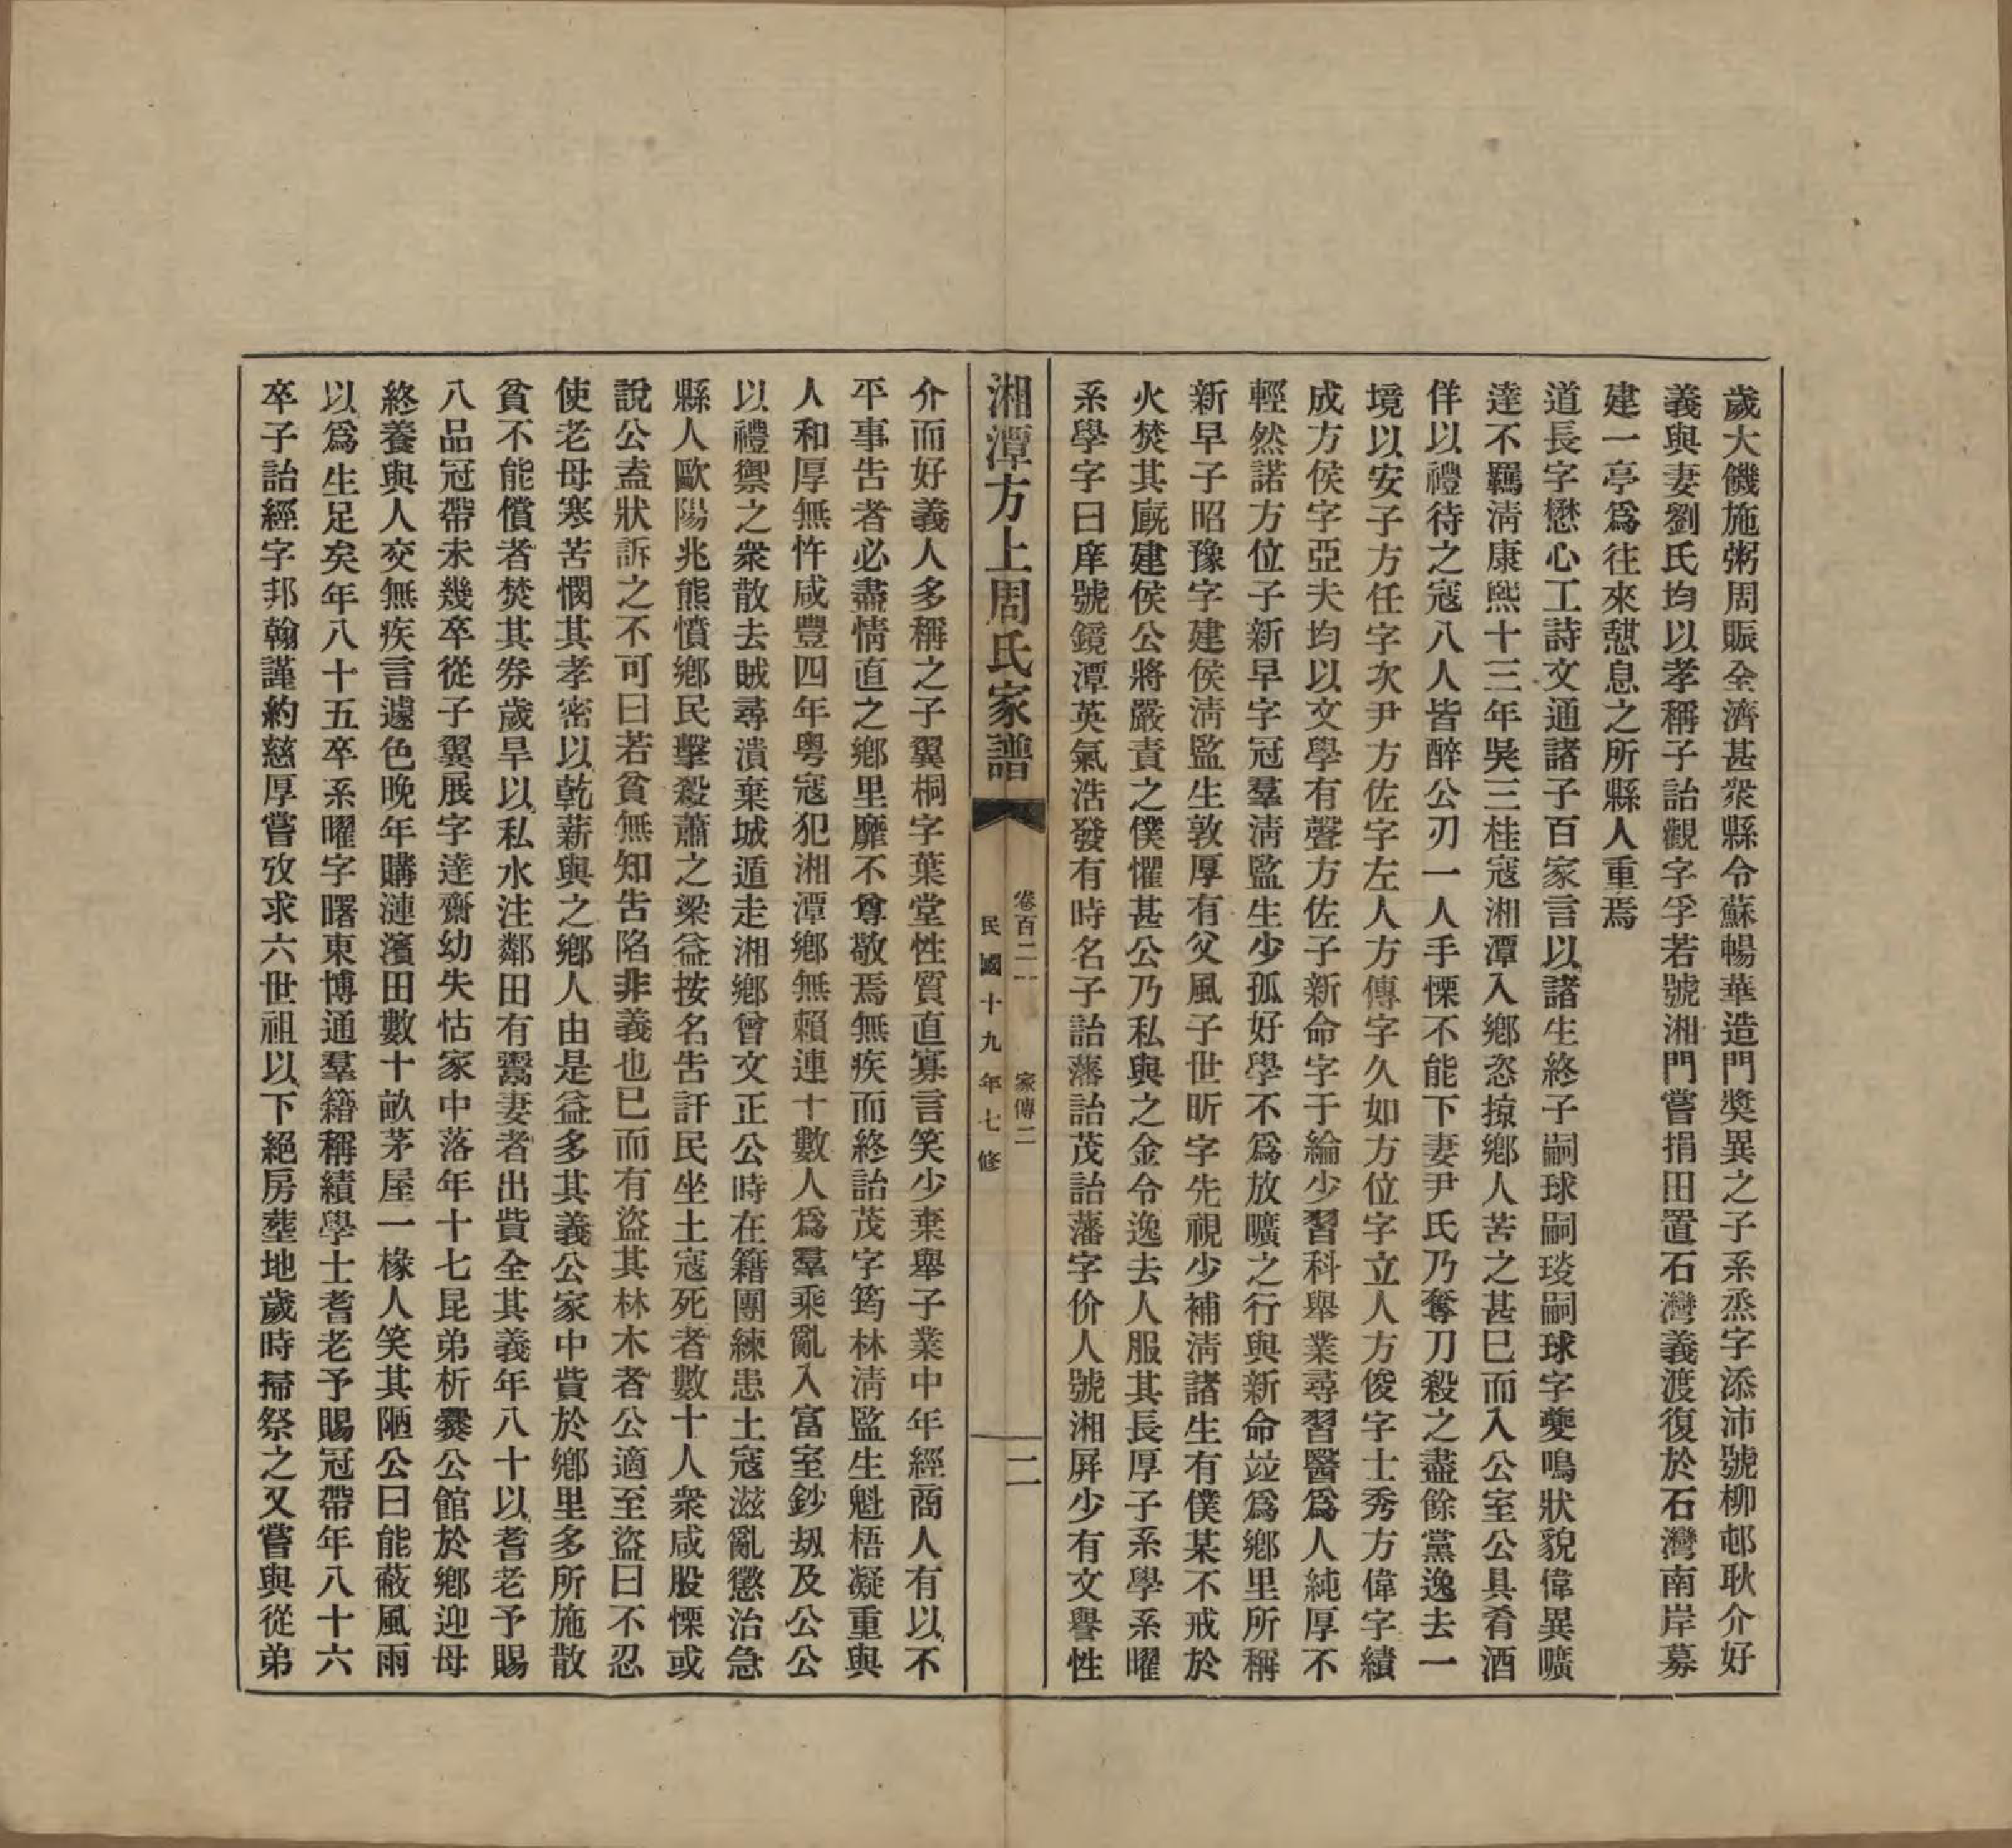 歲大饑施粥周賑全濟甚衆縣令蘇暢華造門奬異之子系烝字添沛號柳邨耿介好
義與妻劉氏均以孝稱子詒觀字孚若號湘門嘗捐田置石灣義渡復於石灣南岸募
建一亭爲往來憇息之所縣人重焉
道長字懋心工詩文通諸子百家言以諸生終子嗣球嗣琰嗣球字夔鳴狀貌偉異曠
達不羈淸康熙十三年吳三桂寇湘潭入鄕恣掠鄕人苦之甚巳而入公室公具肴酒
佯以禮待之寇八人皆醉公刃一人手慄不能下妻尹氏乃奪刀殺之盡餘黨逸去一
境以安子方任字次尹方佐字左人方傳字久如方位字立人方俊字士秀方偉字績
成方侯字亞夫均以文學有聲方佐子新命字于綸少習科舉業尋習醫爲人純厚不
輕然諾方位子新早字冠羣淸監生少孤好學不爲放曠之行與新命竝爲鄕里所稱
新早子昭豫字建侯淸監生敦厚有父風子世昕字先視少補淸諸生有僕某不戒於
火焚其廐建侯公將嚴責之僕懼甚公乃私與之金令逸去人服其長厚子系學系曜
系學字日庠號鏡潭英氣浩發有時名子詒藩詒茂詒藩字价人號湘屛少有文譽性
湘潭方上周氏家譜
卷百二一
家傳二
民國十九年七修
二
介而好義人多稱之子翼桐字葉堂性質直寡言笑少棄舉子業中年經商人有以不
平事告者必盡情直之鄕里靡不尊敬焉無疾而終詒茂字筠林淸監生魁梧凝重與
人和厚無忤咸豐四年粤寇犯湘潭鄕無賴連十數人爲羣乘亂入富室鈔刼及公公
以禮禦之衆散去賊尋潰棄城遁走湘鄕曾文正公時在籍團練患土寇滋亂懲治急
縣人歐陽兆熊憤鄕民擊殺蕭之梁益按名告訐民坐土寇死者數十人衆咸股慄或
說公盍狀訴之不可曰若貧無知告陷非義也已而有盜其林木者公適至盜曰不忍
使老母寒苦憫其孝密以乾薪與之鄕人由是益多其義公家中貲於鄕里多所施散
貧不能償者焚其券歲旱以私水注鄰田有鬻妻者出貲全其義年八十以耆老予賜
八品冠帶未幾卒從子翼展字達齋幼失怙家中落年十七昆弟析爨公館於鄕迎母
終養與人交無疾言遽色晚年購漣濱田數十畝茅屋一椽人笑其陋公曰能蔽風雨
以爲生足矣年八十五卒系曜字曙東博通羣籍稱績學士耆老予賜冠帶年八十六
卒子詒經字邦翰謹約慈厚嘗攷求六世祖以下絕房塟地歲時掃祭之又嘗與從弟